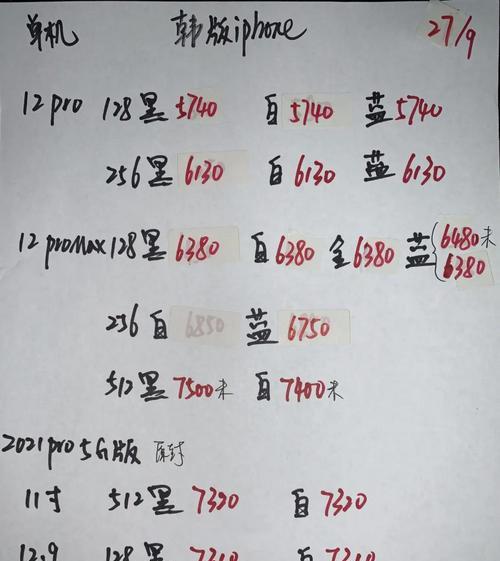 单机 韩版iphone 27/9
12pro 128黑5740 白5740 蓝5740
256黑6130 白6130 蓝6130
12proMax128黑6380 白6380 金6380 蓝{6480未
6380
256白6850 蓝6750
512黑7500未 白7400未
2021pro5G版 原封
11寸 512黑7320 白7320
12.9 128黑